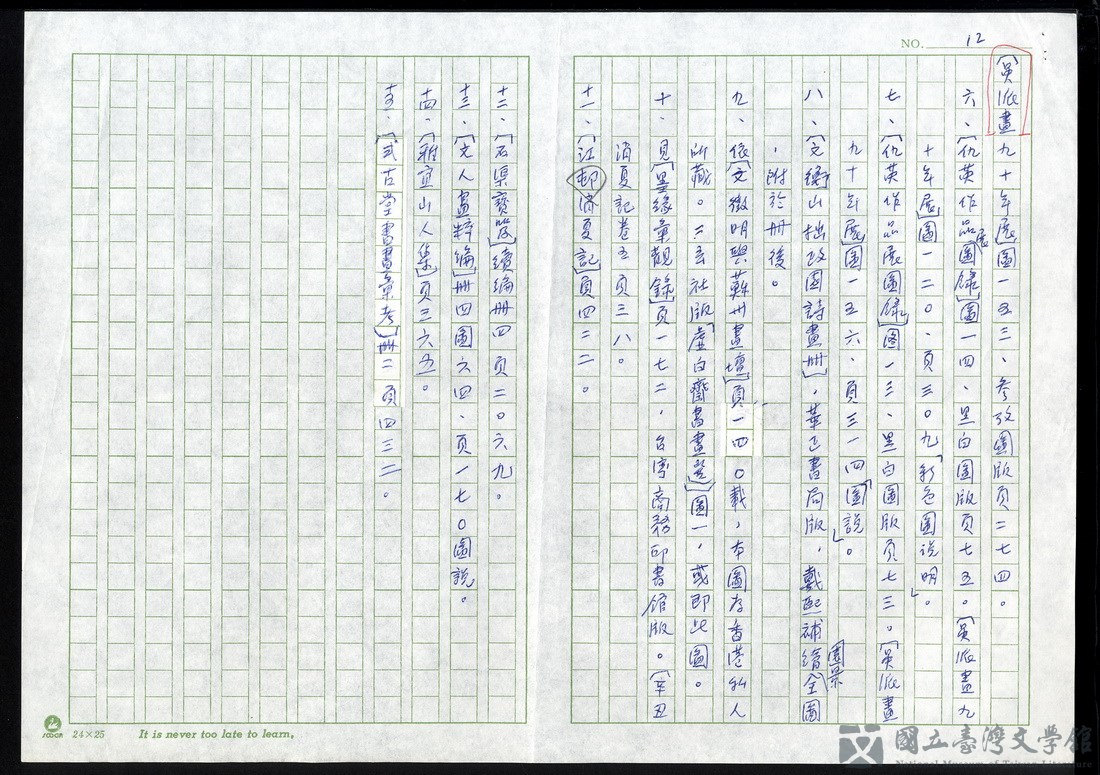 NO. 12
〔吳派畫九十年展〕圖一五三、參攷圖版頁二七四。
六、〔仇英作品展圖錄〕圖一四、黑白圖版頁七五。〔吳派畫九
十年展〕圖一二〇、頁三〇九「彩色圖說明」。
七、〔仇英作品展圖錄〕圖一三、黑白圖版頁七三。〔吳派畫
九十年展〕圖一五六、頁三一四「圖說」。
八、〔文衡山拙政園詩畫冊〕，華正書局版，戴熙補繪全園景圖
，附於冊後。
九、依〔文徵明與蘇州畫壇〕頁一四〇載，本圖存香港私人
所藏。二玄社版〔虛白齋書畫選〕圖一，或即此圖。
十、見〔墨緣彙觀錄〕頁一七二，台灣商務印書館版。〔辛丑
消夏記卷五頁三八。
十一、〔江邨消夏記〕頁四三二。
十二、〔石渠寶笈〕續編冊四頁二〇六九。
十三、〔文人畫粹編〕冊四圖六四、頁一七〇圖說。
十四、〔雅宜山人集〕頁三六五。
十五、〔式古堂書畫彙考〕冊二頁四三二。
24×25
It is never too late to learn.
國立臺灣文學館
National Museum of Taiwan Literature